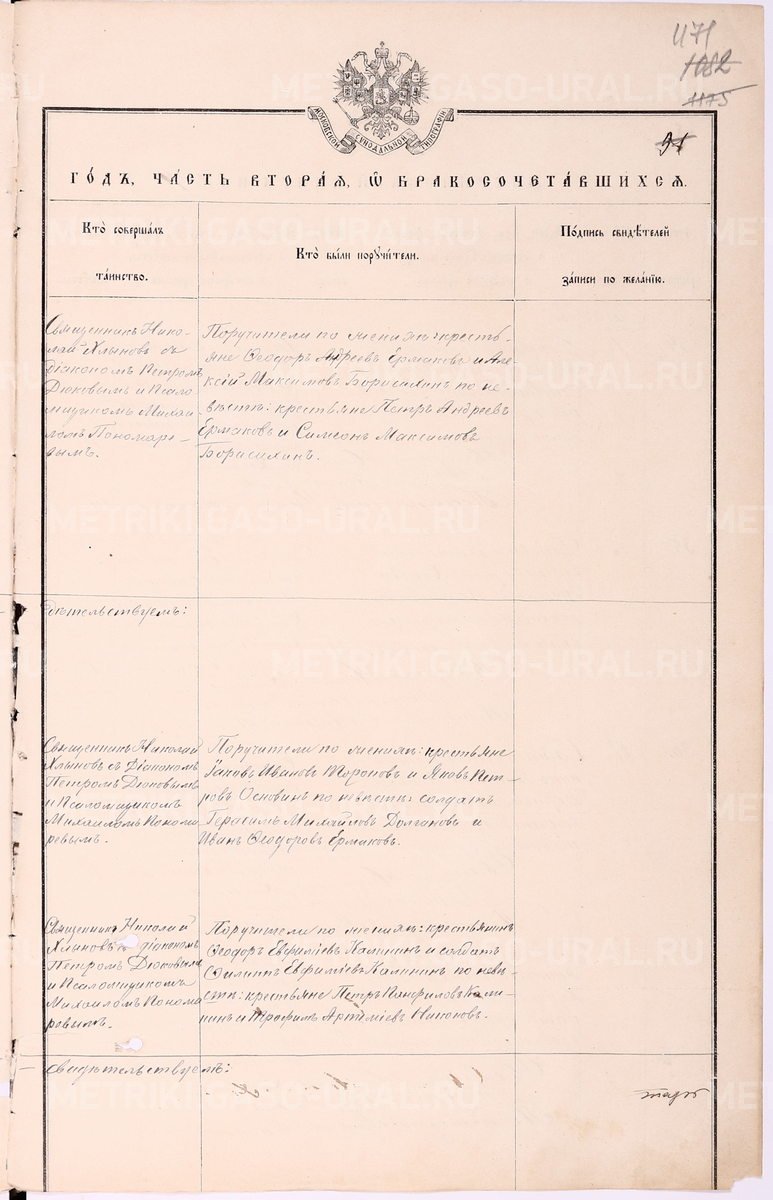 1171
1182
1175
91
МОСКОВСКОЙ СѴНОДАЛЬНОЙ ТИПОГРАФІИ
ГО́ДЪ, ЧА́СТЬ ВТОРА́Я, Ѽ БРАКОСОЧЕТА́ВШИХСЯ.
Кто̀ соверша́лъ
та́инство.
Кто̀ бы́ли порꙋчи́тели.
По́дпись свидѣ́телей
за́писи по жела́нїю.
Священникъ Нико-
лай Хлыновъ съ
Діакономъ Петромъ
Дюковымъ и Псало-
мщикомъ Михаи
ломъ Пономаре-
вымъ.
Поручители по женихѣ: кресть-
яне Ѳеодоръ Ермаковъ и Але-
ксій Максимовъ Борисихинъ по не-
вѣстѣ: крестьяне Петръ Андреевъ
Ермаковъ и Симеонъ Максимовъ
Борисихинъ.
дѣтельствуемъ:
Священникъ Николай
Хлыновъ съ Діакономъ
Петромъ Дюковымъ
и Псаломщикомъ
Михаиломъ Понома
ревымъ.
Поручители по женихѣ: крестьяне
Іаковъ Ивановъ и Яковъ Пет-
ровъ Основинъ по невѣстѣ: солдатъ
Герасимъ Михайловъ Долгановъ и
Иванъ Ѳеодоровъ Ермаковъ.
Священникъ Николай
Хлыновъ съ діакономъ
Петромъ Дюковымъ
и Псаломщикомъ
Михаиломъ Понома
ревымъ.
Поручители по женихѣ: крестьянинъ
Ѳеодоръ Евфиміевъ Калининъ и солдатъ
Филиппъ Евфиміевъ Калининъ по невѣ-
стѣ: крестьяне Петръ Панфиловъ Кали-
нинъ и Трофимъ Артеміевъ Никоновъ.
свидѣтельствуемъ:
METRIKI.GASO-URAL.RU